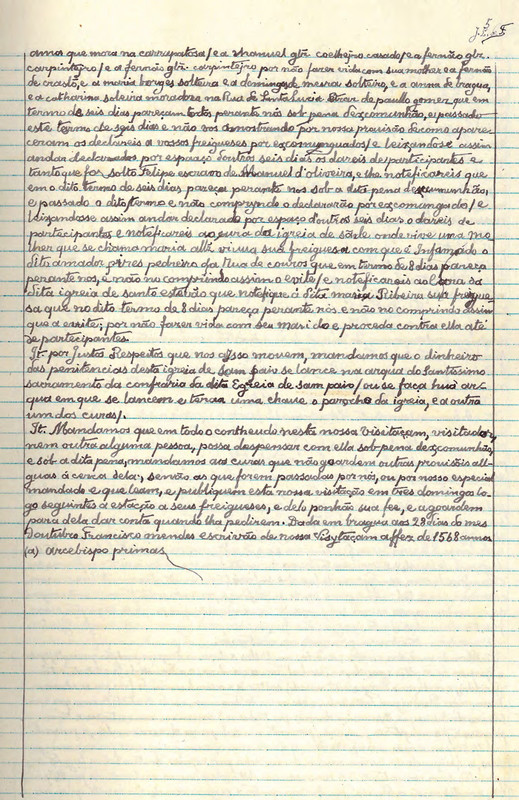 5
amos que mora na carrapatosa / e a Manuel glz. coelhejro casado / e a fernão glz.
carpintejro / e a fernão glz. carpintejro por não fazer vida com sua molher e a fernão
de crasto, e a maria borges solteira e a domingos de mesra solteiro, e a anna de bragua,
e a catharina solteira moradores na Rua de Santa luzia E bras de paullo gomez que em
termo de seis dias pareçam todos perante nós sob pena dexcomunhão, e passado
este termo de seis dias e não vos amostrando por nossa provisão de como apare-
ceram os declareis a vossos freigueses por excomungados / e leixandose assim
andar declarados por espaço doutros seis dias os dareis de participantes e
tanto que for solto Felipe escravo de Manuel d'oliveira, e lhe noteficareis que
em o dito termo de seis dias pareça perante nos sob a dita pena dexcumunhão,
e passado o dito termo e não comprindo o declararão por excomungado / e
leixandose assim andar declarado por espaço d'outros seis dias o dareis de
participantes e noteficareis ao cura da igreja de sãde onde vive uma mo-
lher que se chama maria allz. viuva sua freiguesa com que é Infamado o
dito amador pires pedreiro da Rua de couros que em termo de 8 dias pareça
perante nós, e não no comprindo assim o evite / e noteficareis ao Cura da
dita igreja de santo estevão que notefique a dita maria Ribeira sua freigue-
sa que no dito termo de 8 dias pareça perante nós e não no comprindo assim
que a evite; por não fazer vida com seu marido e proceda contra ella até
de participantes.
It. por Justos Respeitos que nos a Isso movem, mandamos que o dinheiro
das penitencias desta igreja de Sam paio se lance na arqua do Santissimo
sacramento da confraria da dita Egreia de sam paio / ou se faça huã ar-
qua em que se lancem e terãa uma chave o parocho da igreja, e a outra
um dos curas /.
It. Mandamos que em todo o contheudo nesta nossa Visitaçam, visitador,
nem outra alguma pessoa, possa despensar com ella sob pena dexcomunhão,
e sob a dita pena, mandamos aos curas que não goardem outras provisões all-
guãs á cerca dela, senão as que forem passadas por nós, ou por nosso especial
mandado e que leam, e publiquem esta nossa visitação em tres domingos lo-
go seguintes á estação a seus freigueses, e delo ponhão sua fee, e agoardem
para dela dar conta quando lha pedirem. Dada em bragua aos 28 dias do mes
doutubro Francisco mendes escrivão de nossa Visytaçam a ffez de 1568 annos
(a) Arcebispo primas